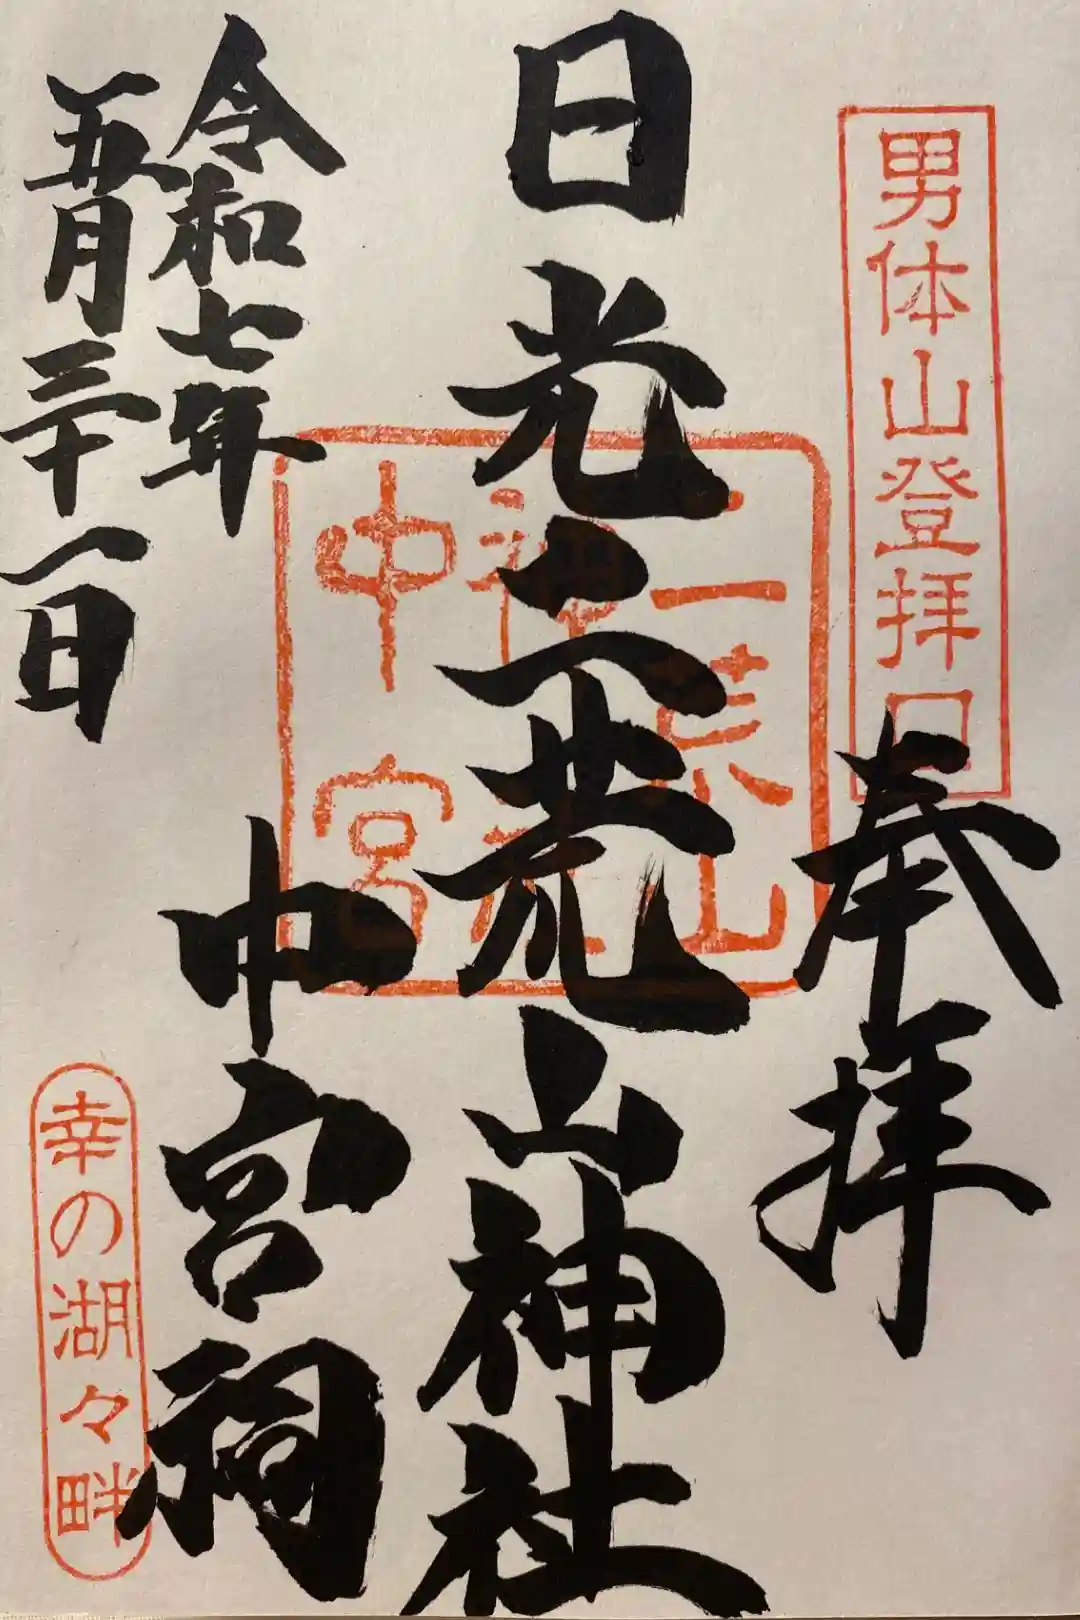 男体山登拝口
奉拝
日光二荒山神社
二荒山
神
中宮
中宮祠
令和七年
五月三十一日
幸の湖々畔